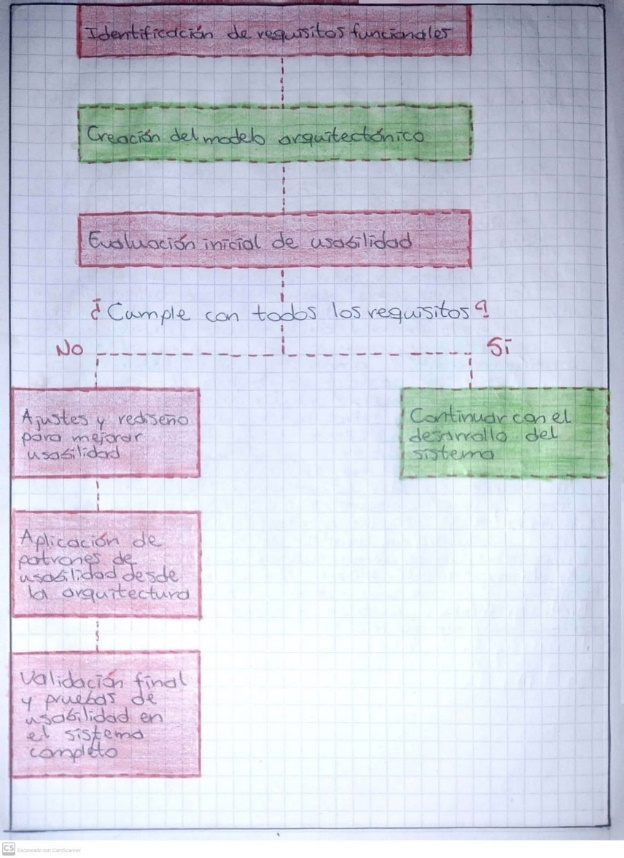 Identificación de requisitos funcionales
Creación del modelo arquitectónico
Evaluación inicial de usabilidad
¿Cumple con todos los requisitos?
No
Sí
Ajustes y rediseño
para mejorar
usabilidad
Continuar con el
desarrollo del
sistema
Aplicación de
patrones de
usabilidad desde
la arquitectura
Validación final
y pruebas de
usabilidad en
el sistema
completo
CS Escaneado con CamScanner